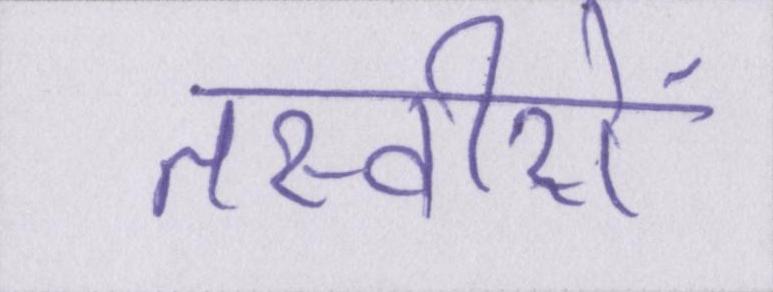 तस्वीरों